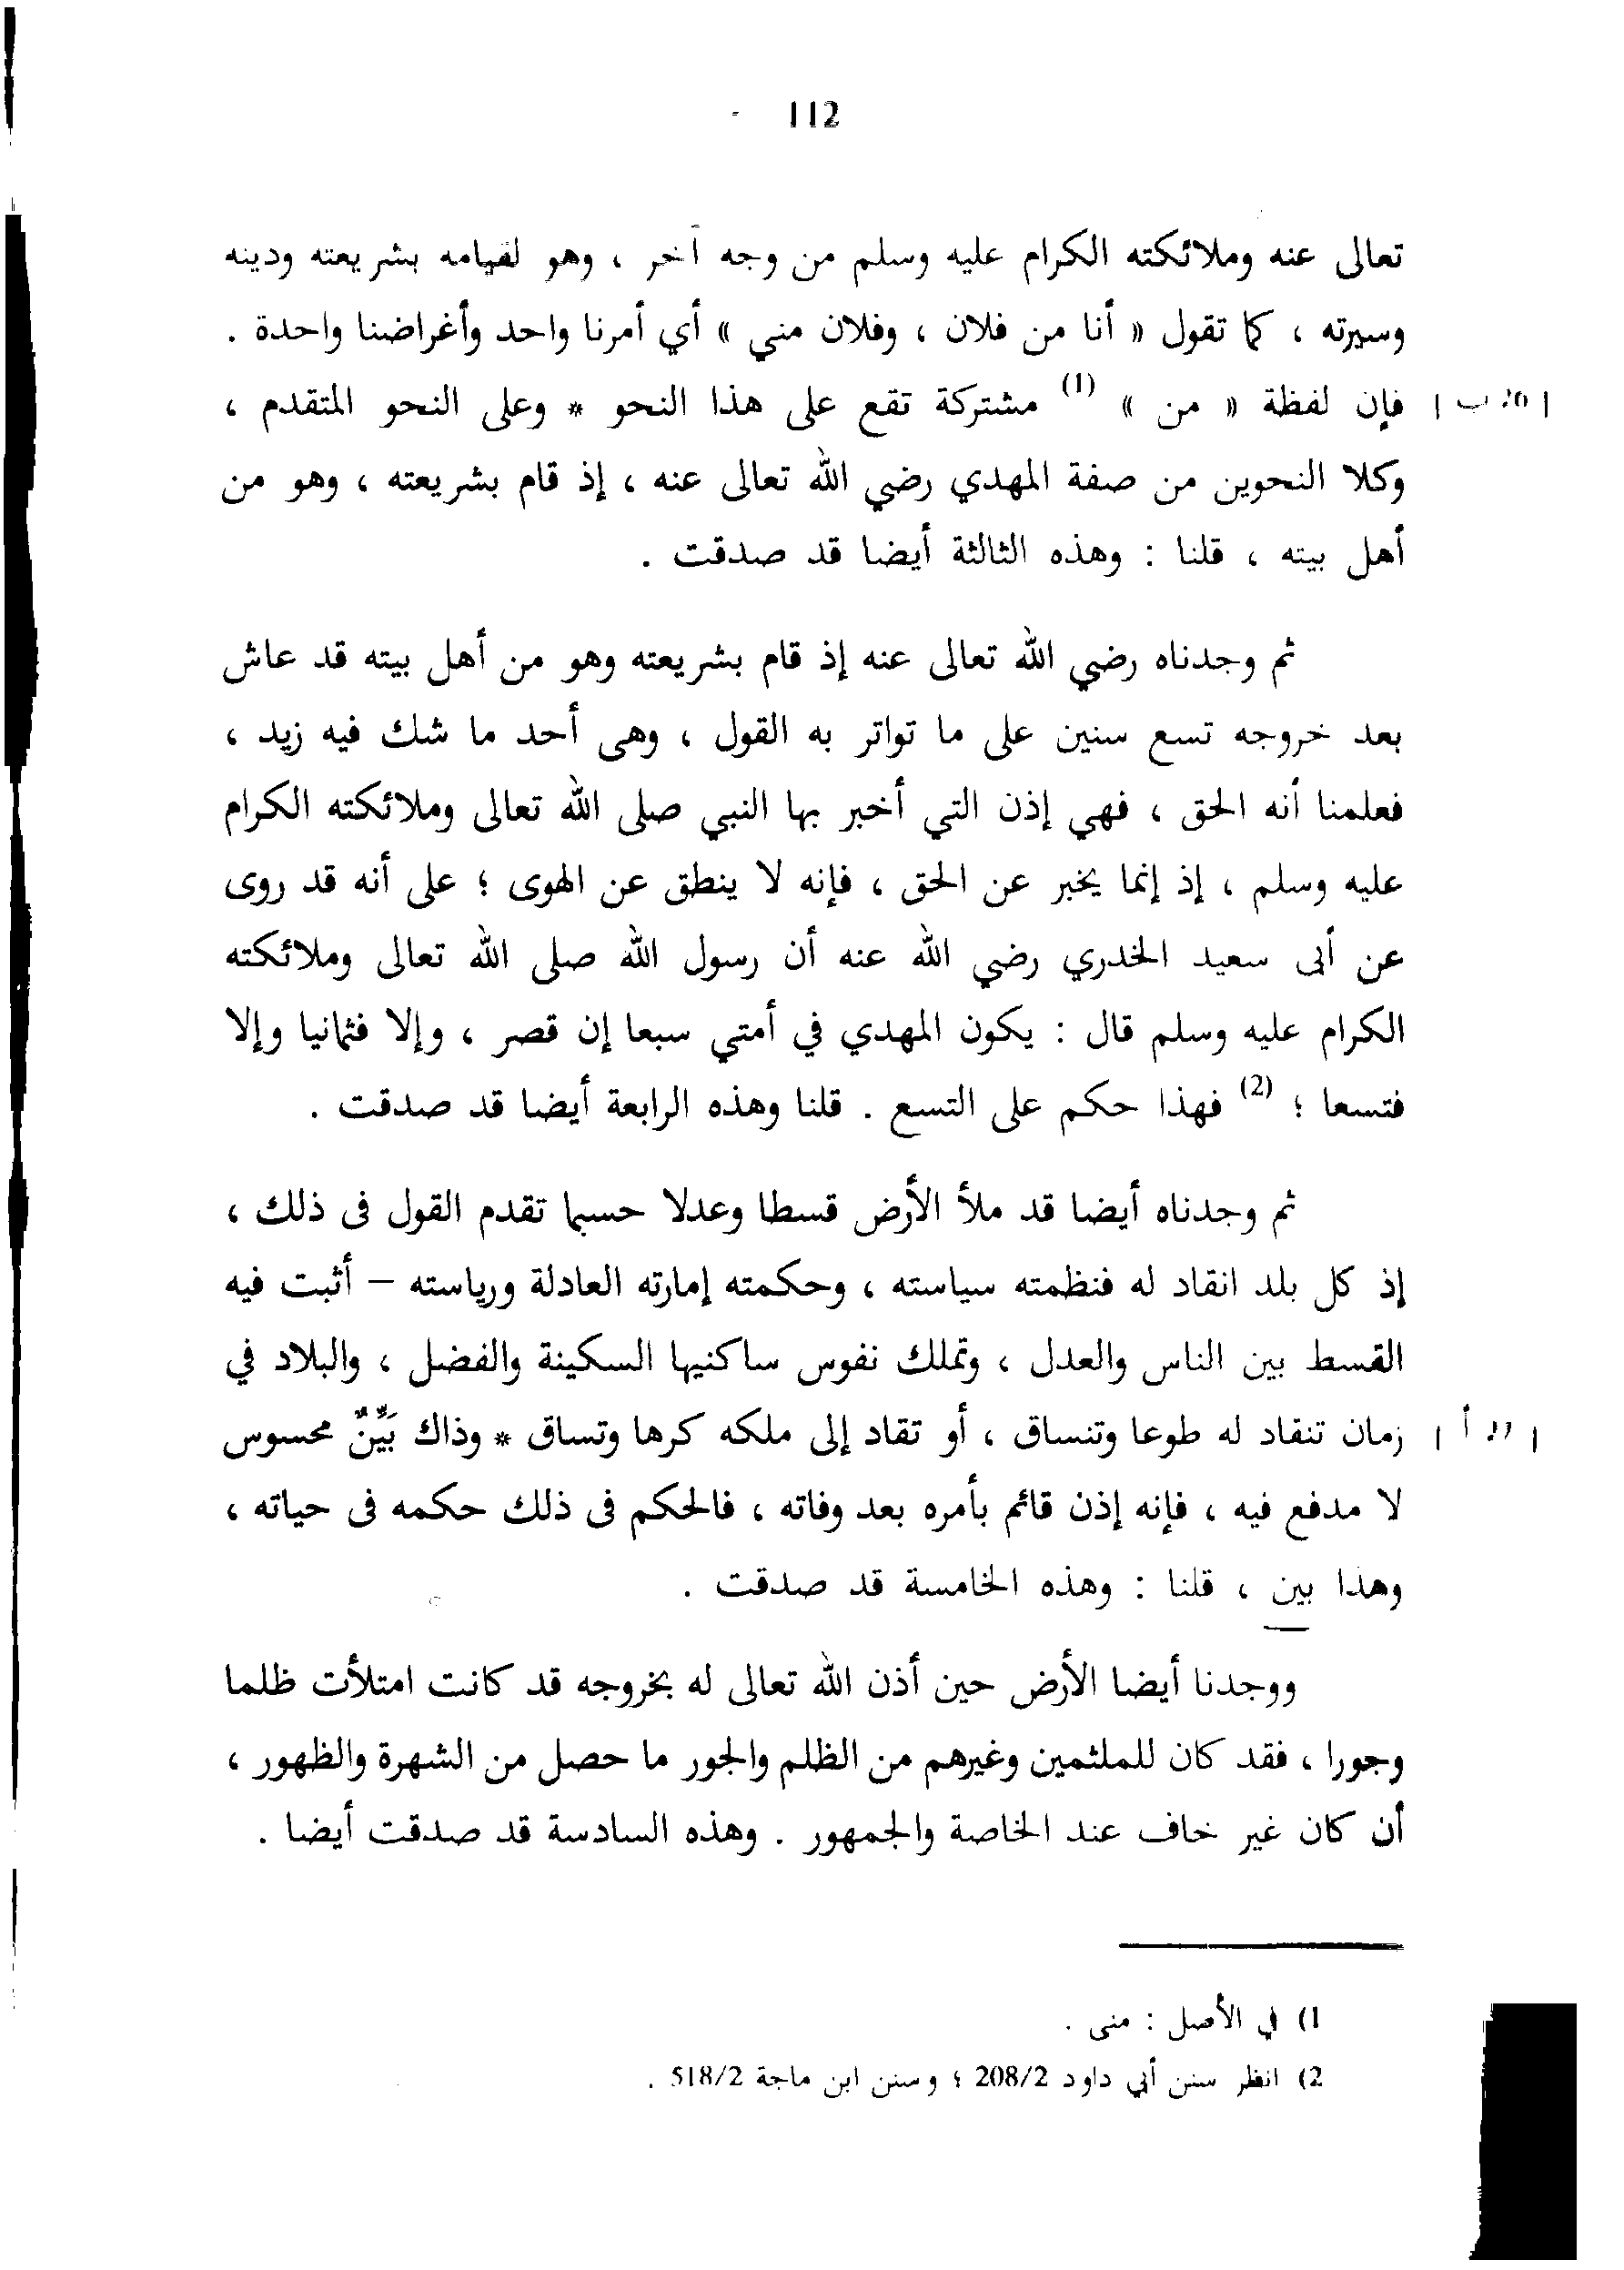 112
تعالى عنه وملائكته الكرام عليه وسلم من وجه آخر ، وهو لقيامه بشريعته ودينه
وسيرته ، كما تقول « أنا من فلان ، وفلان مني » أي أمرنا واحد وأغراضنا واحدة .
فإن لفظة « من » (1) مشتركة تقع على هذا النحو * وعلى النحو المتقدم ،
وكلا النحوين من صفة المهدي رضي الله تعالى عنه ، إذ قام بشريعته ، وهو من
أهل بيته ، قلنا : وهذه الثالثة أيضا قد صدقت .
ثم وجدناه رضي الله تعالى عنه إذ قام بشريعته وهو من أهل بيته قد عاش
بعد خروجه تسع سنين على ما تواتر به القول ، وهى أحد ما شك فيه زيد ،
فعلمنا أنه الحق ، فهي إذن التي أخبر بها النبي صلى الله تعالى وملائكته الكرام
عليه وسلم ، إذ إنما يخبر عن الحق ، فإنه لا ينطق عن الهوى ؛ على أنه قد روى
عن أبى سعيد الخدري رضي الله عنه أن رسول الله صلى الله تعالى وملائكته
الكرام عليه وسلم قال : يكون المهدي في أمتي سبعا إن قصر ، وإلا فثمانيا وإلا
فتسعا ؛ (2) فهذا حكم على التسع . قلنا وهذه الرابعة أيضا قد صدقت .
ثم وجدناه أيضا قد ملأ الأرض قسطا وعدلا حسبما تقدم القول فى ذلك ،
إذ كل بلد انقاد له فنظمته سياسته ، وحكمته إمارته العادلة ورياسته – أثبت فيه
القسط بين الناس والعدل ، وتملك نفوس ساكنيها السكينة والفضل ، والبلاد في
زمان تنقاد له طوعا وتنساق ، أو تقاد إلى ملكه كرها وتساق * وذاك بَيِّنٌ محسوس
لا مدفع فيه ، فإنه إذن قائم بأمره بعد وفاته ، فالحكم فى ذلك حكمه فى حياته ،
وهذا بين ، قلنا : وهذه الخامسة قد صدقت .
ووجدنا أيضا الأرض حين أذن الله تعالى له بخروجه قد كانت امتلأت ظلما
وجورا ، فقد كان للملثمين وغيرهم من الظلم والجور ما حصل من الشهرة والظهور ،
أن كان غير خاف عند الخاصة والجمهور . وهذه السادسة قد صدقت أيضا .
1) في الأصل : منى .
2) انظر سنن أبي داود 208/2 ؛ وسنن ابن ماجة 518/2 .